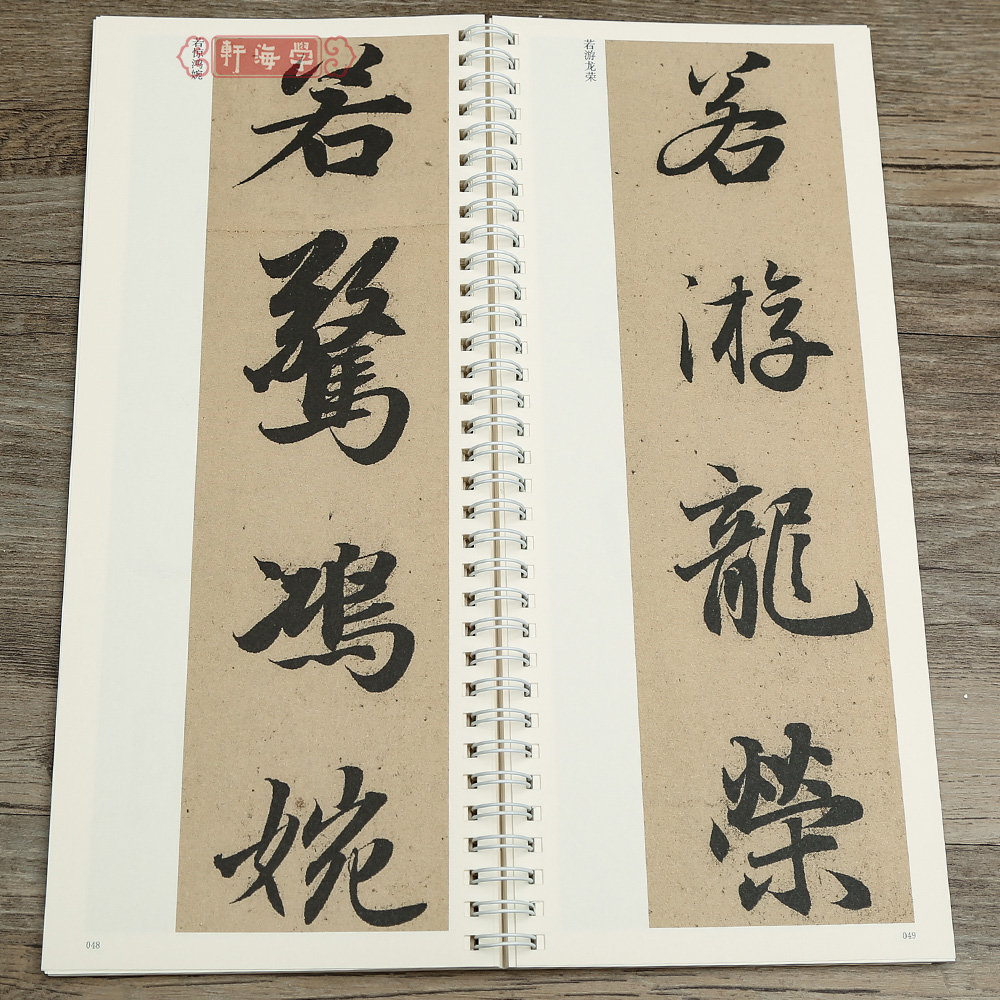 學海軒
若惊鸿婉
若驚鴻婉
048
若游龙荣
若游龍榮
049